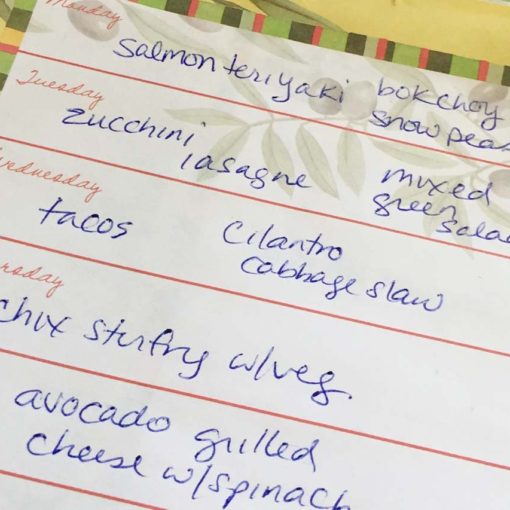 Monday
salmon teriyaki bokchoy
snow peas
Tuesday
zucchini
lasagne
mixed
green
salad
Wednesday
tacos
cilantro
cabbage slaw
Thursday
chix stirfry w/veg.
avocado grilled
cheese w/spinach